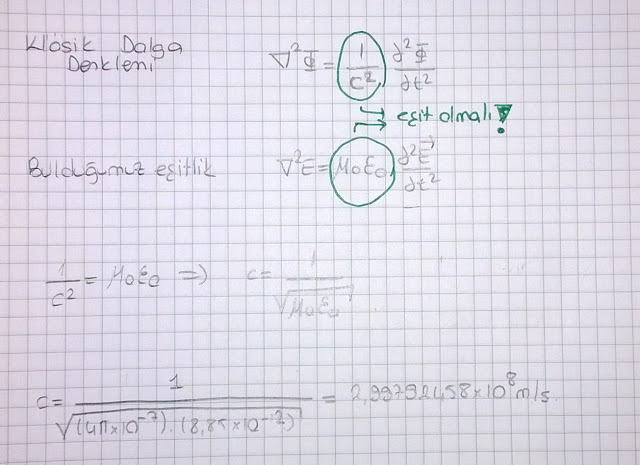 Klasik Dalga Denklemi ∇²Φ = 1/c² ∂²Φ/∂t²
eşit olmalı!
Bulduğumuz eşitlik ∇²E = μ₀ε₀ ∂²E⃗/∂t²
1/c² = μ₀ε₀ => c = 1/√(μ₀ε₀)
c = 1/√((4π×10⁻⁷).(8,85×10⁻¹²)) = 2,99792458×10⁸ m/s.